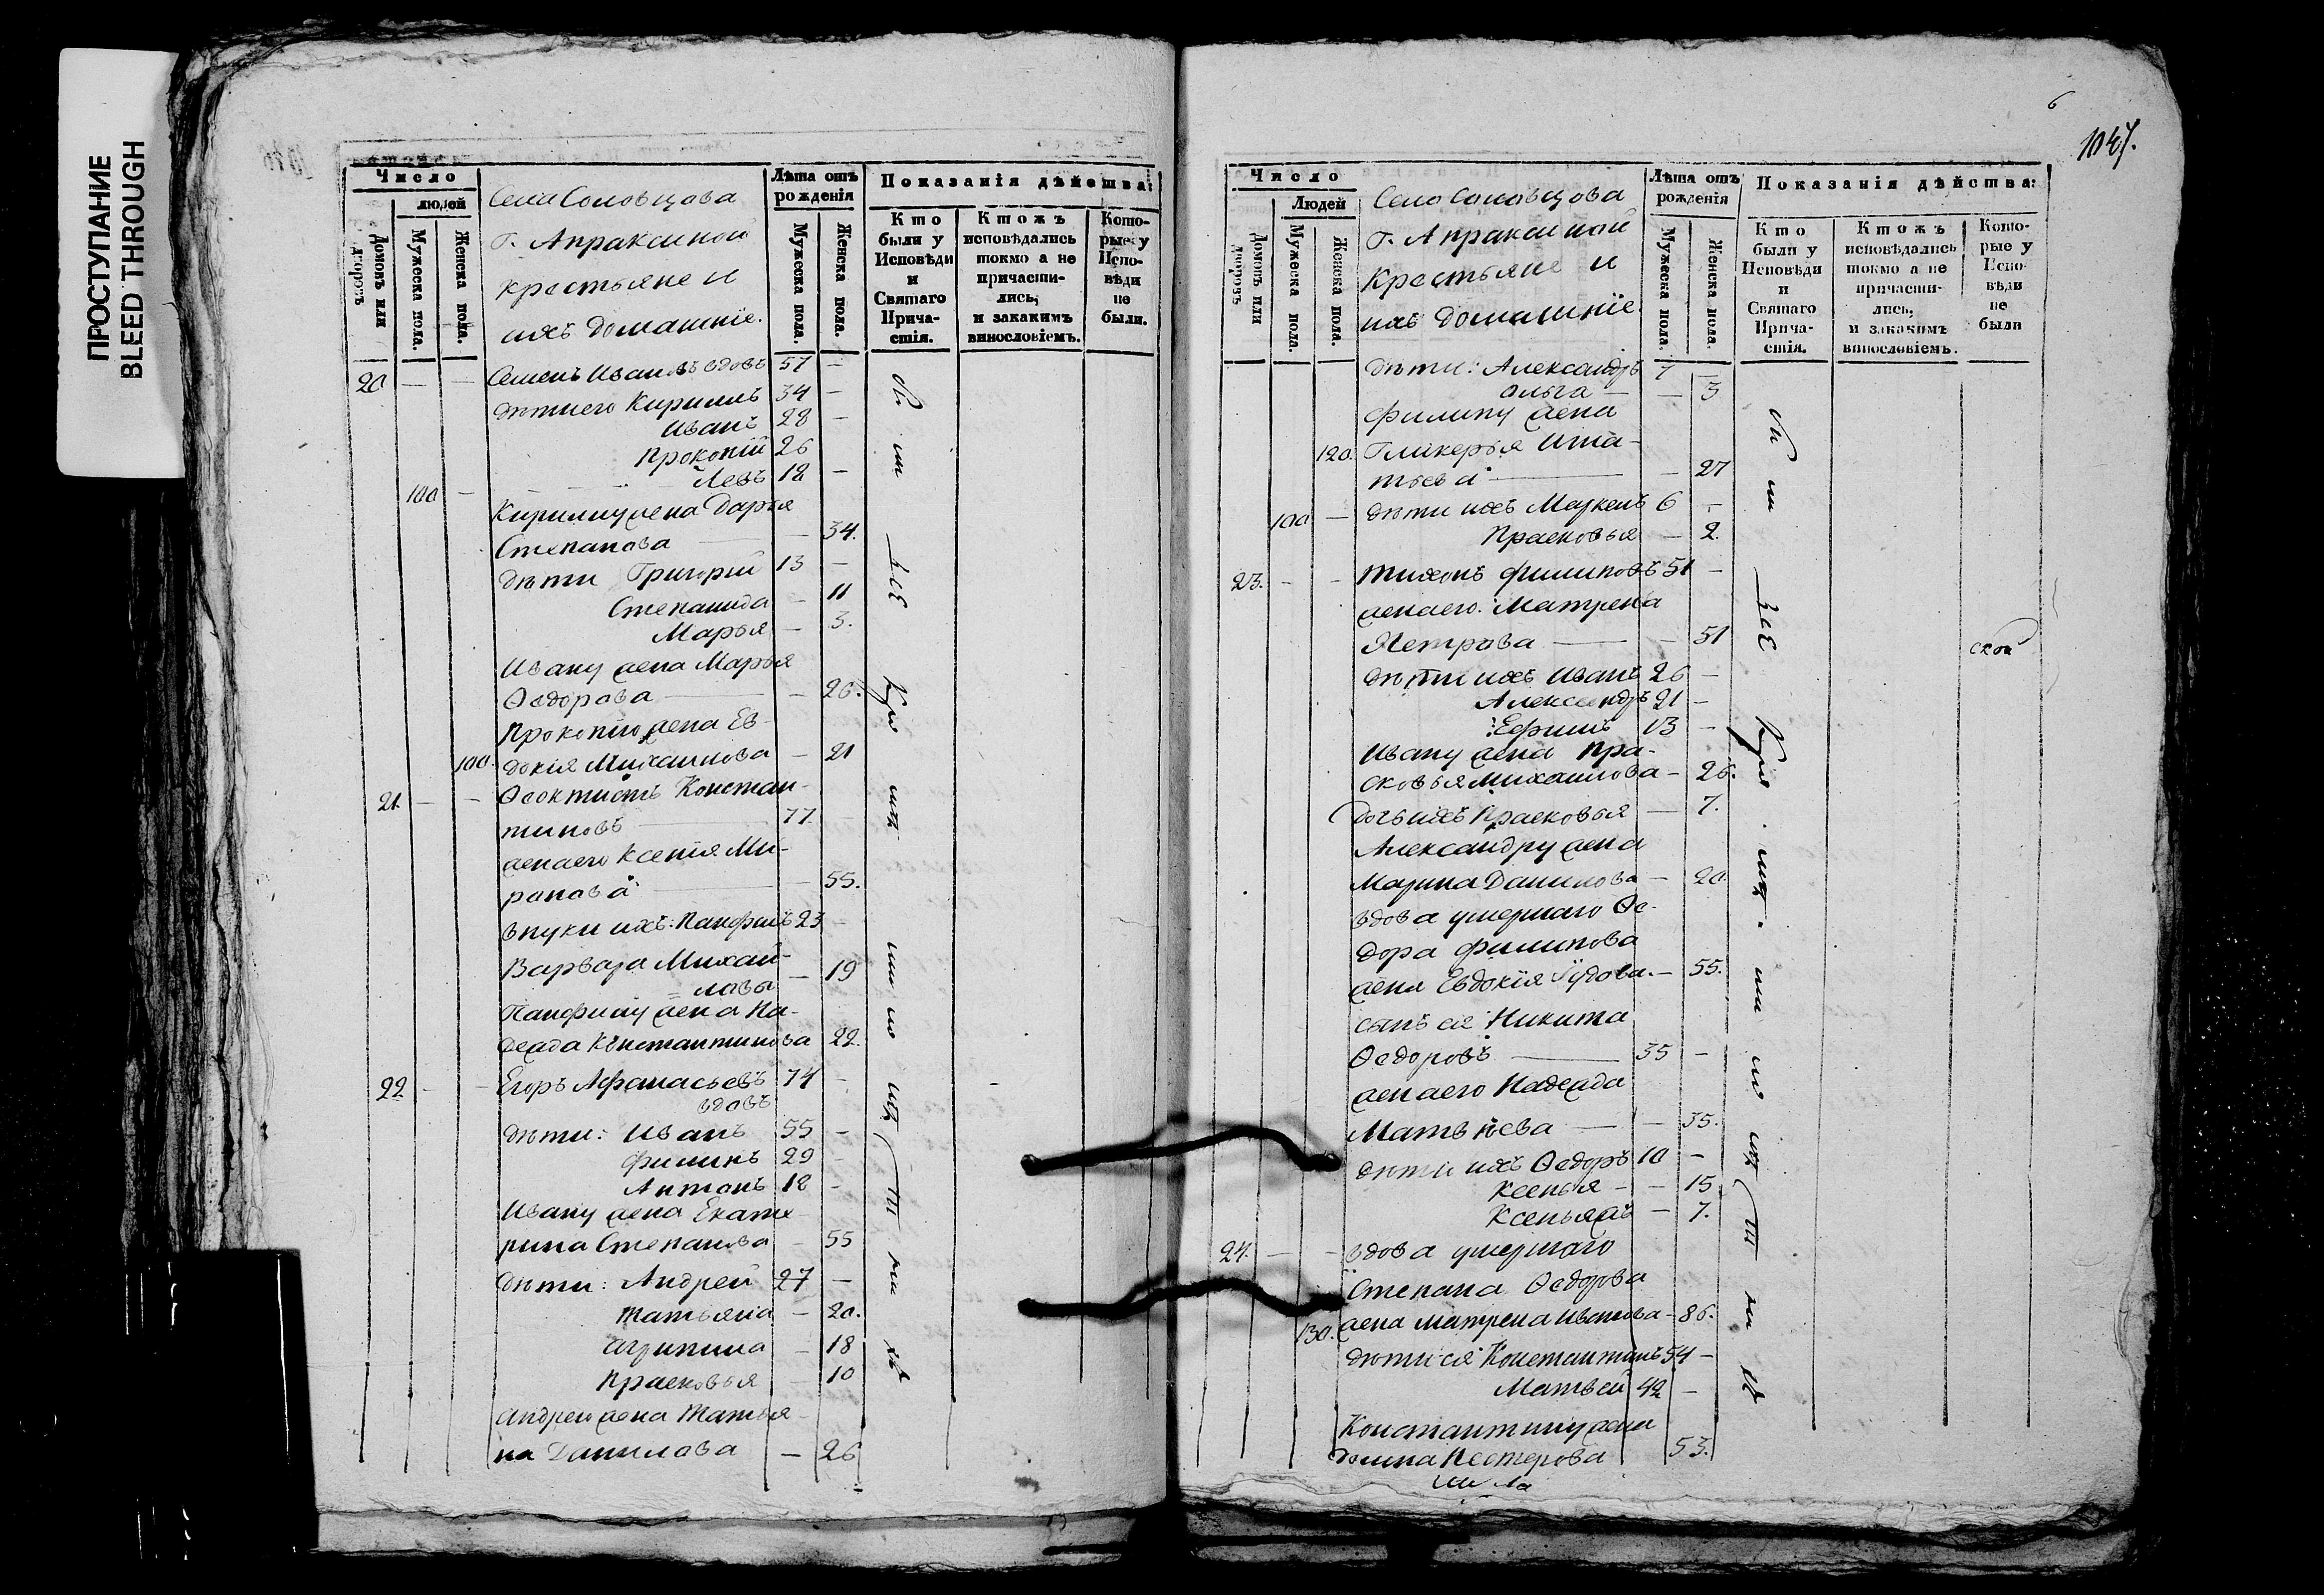 ПРОСТУПАНИЕ
BLEED THROUGH
Число
людей
Домовъ или дворовъ
Мужеска пола.
Женска пола.
Села Соловцова
г. Апраксиной
крестьяне и
ихъ домашніе.
Лѣта отъ
рожденія
Мужеска пола.
Женска пола.
Показанія дѣйства:
Кто
были у
Исповѣди
и
Святаго
Прича-
стія.
Ктожъ
исповѣдались
токмо а не
причасти-
лись,
и закакимъ
винословіемъ.
Кото-
рые у
Испо-
вѣди
не
были.
20 — — Семенъ Ивановъ вдовъ 57 —
дѣти его Кирилъ 34 —
Иванъ 28 —
Прокопій 26
Левъ 18 —
100 —
Кирилу жена Дарья
Степанова — 34.
дѣти Григорій 13 —
Степанида — 11
Марья — 3.
Ивану жена Марья
Ѳедорова — 26.
Прокопію жена Ев-
100. докія Михаилова — 21
21. — — Ѳеоктистъ Констан-
тиновъ — 77
жена его Ксенія Ми-
ронова — 55.
внуки ихъ: Панфилъ 23 —
Варвара Михай- — 19
ловы
Панфилу жена На-
дежда Константинова 22.
22 — — Егоръ Афанасьевъ 74 —
вдовъ
дѣти: Иванъ 55 —
Филипъ 29 —
Антонъ 18 —
Ивану жена Екате-
рина Степанова — 55
дѣти: Андрей 27 —
Татьяна — 20.
Агрипина — 18
Прасковья — 10
Андрею жена Татья-
на Данилова — 26
6
1047.
Число
Людей
Домовъ или дворовъ
Мужеска пола.
Женска пола.
Село Соловцова
г. Апраксиной
Крестьяне и
ихъ домашніе.
Лѣта отъ
рожденія
Мужеска пола.
Женска пола.
Показанія дѣйства:
Кто
были у
Исповѣди
и
Святаго
Прича-
стія.
Ктожъ
исповѣдались
токмо а не
причасти-
лись,
и закакимъ
винословіемъ.
Кото-
рые у
Испо-
вѣди
не
были
дѣти: Александръ 7 —
Ольга — 3
Филипу жена
120. Гликерья Игна-
тьева — 27
100 — дѣти ихъ Маркелъ 6 —
Прасковья — 2.
23. — — Тихонъ Филиповъ 51 —
жена его Матрена
Петрова — 51
дѣти ихъ Иванъ 26 —
Александръ 21 —
Ефимъ 13 —
Ивану жена Пра-
сковья Михаилова — 26.
дочь ихъ Прасковья — 7.
Александру жена
Марина Данилова — 20.
вдова умершаго Ѳе-
дора Филипова
жена Евдокія — 55.
сынъ ея Никита
Ѳедоровъ — 35 —
жена его Надежда
Матвѣева — 35.
дѣти ихъ Ѳедоръ 10 —
Ксенья — 15
Ксенья — 7.
24. — — вдова умершаго
Степана Ѳедорова
130. жена Матрена Иванова — 86.
дѣти ея Константинъ 54 —
Матвей 42 —
Константину жена
Нестерова 53.